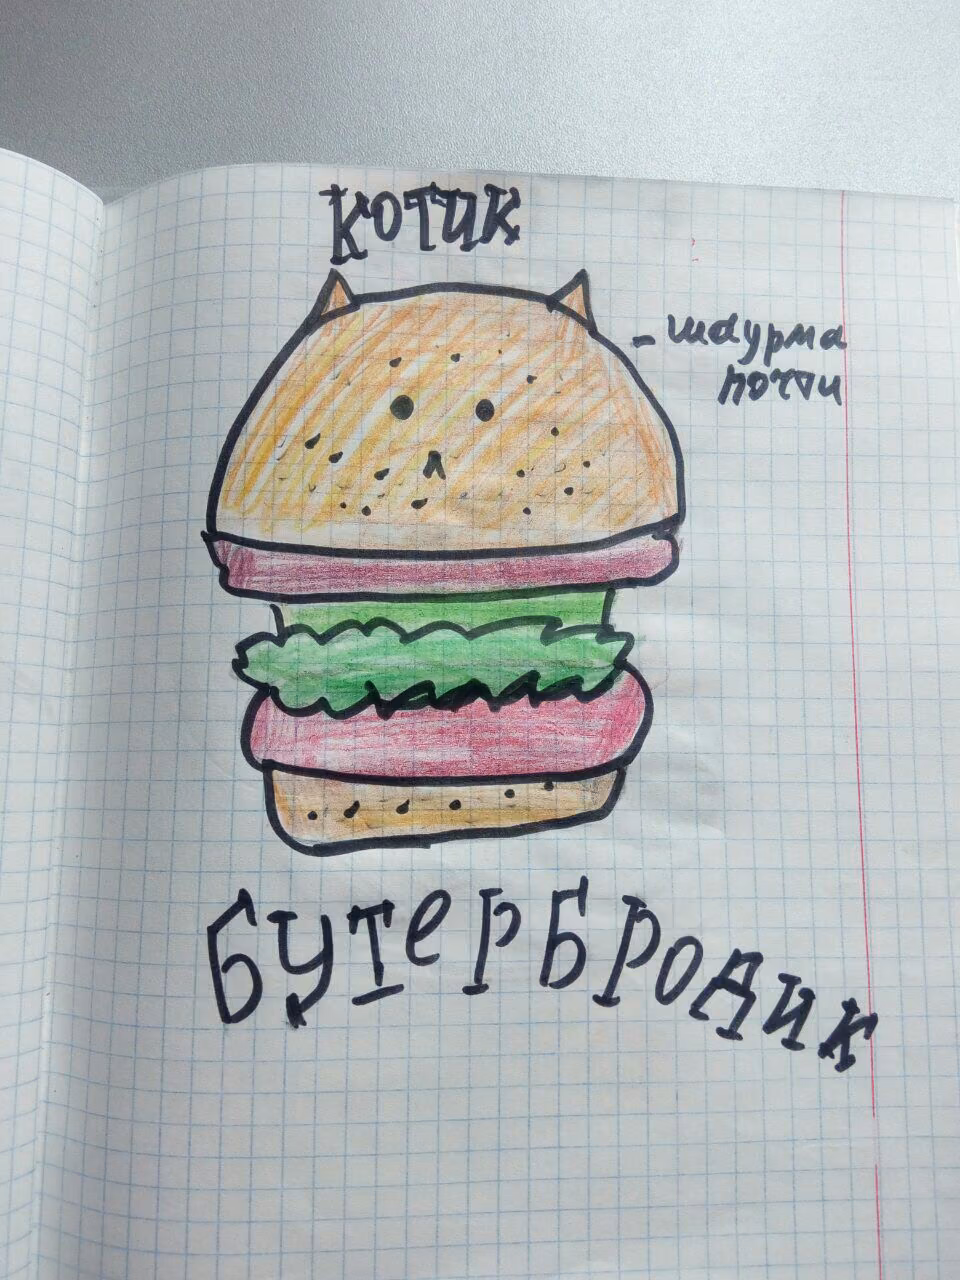 котик
- шаурма
почти
бутербродик